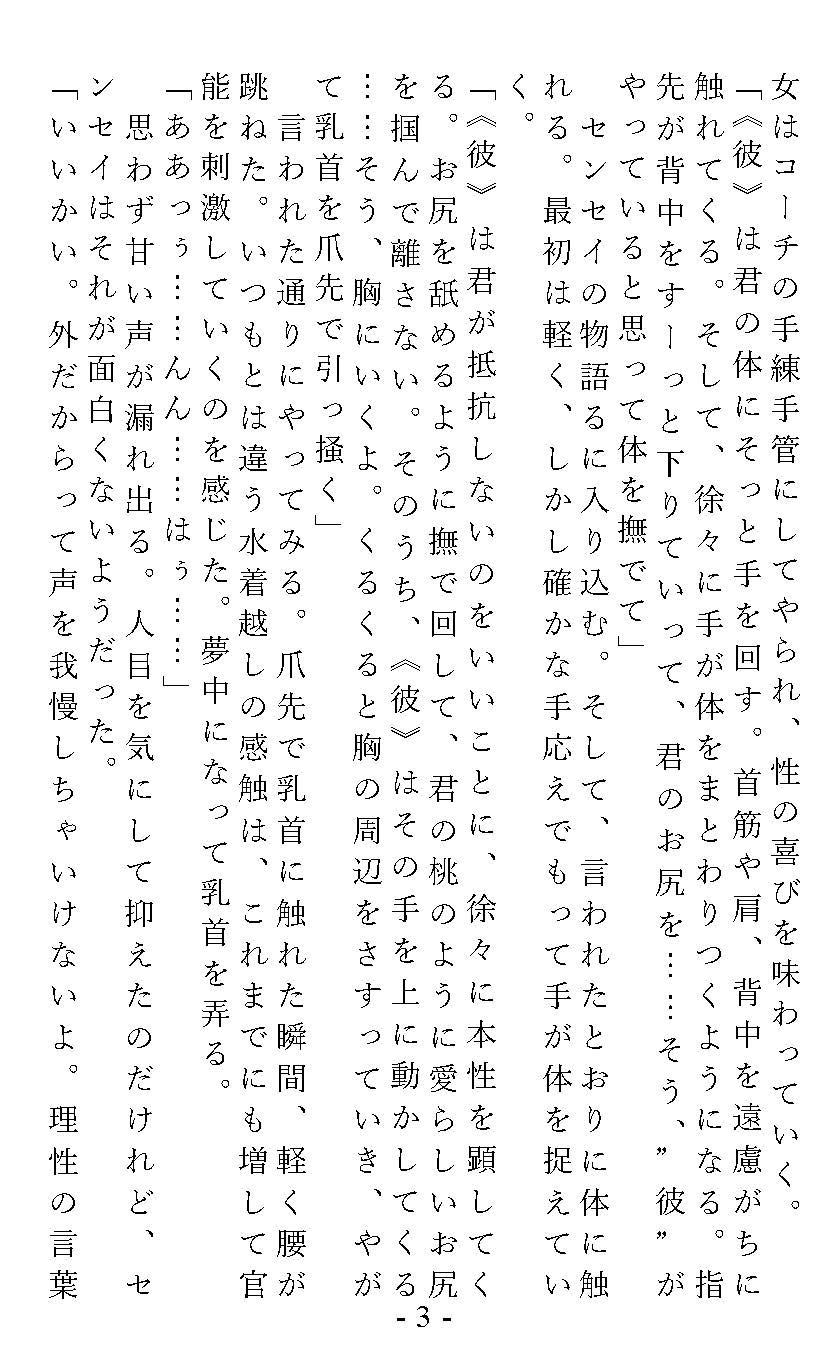 女はコーチの手練手管にしてやられ、性の喜びを味わっていく。
「《彼》は君の体にそっと手を回す。首筋や肩、背中を遠慮がちに
触れてくる。そして、徐々に手が体をまとわりつくようになる。指
先が背中をすーっと下りていって、君のお尻を……そう、”彼”が
やっていると思って体を撫でて」
　センセイの物語るに入り込む。そして、言われたとおりに体に触
れる。最初は軽く、しかし確かな手応えでもって手が体を捉えてい
く。
「《彼》は君が抵抗しないのをいいことに、徐々に本性を顕してく
る。お尻を舐めるように撫で回して、君の桃のように愛らしいお尻
を掴んで離さない。そのうち、《彼》はその手を上に動かしてくる
……そう、胸にいくよ。くるくると胸の周辺をさすっていき、やが
て乳首を爪先で引っ掻く」
　言われた通りにやってみる。爪先で乳首に触れた瞬間、軽く腰が
跳ねた。いつもとは違う水着越しの感触は、これまでにも増して官
能を刺激していくのを感じた。夢中になって乳首を弄る。
「ああっぅ……んん……はぅ……」
　思わず甘い声が漏れ出る。人目を気にして抑えたのだけれど、セ
ンセイはそれが面白くないようだった。
「いいかい。外だからって声を我慢しちゃいけないよ。理性の言葉
- 3 -